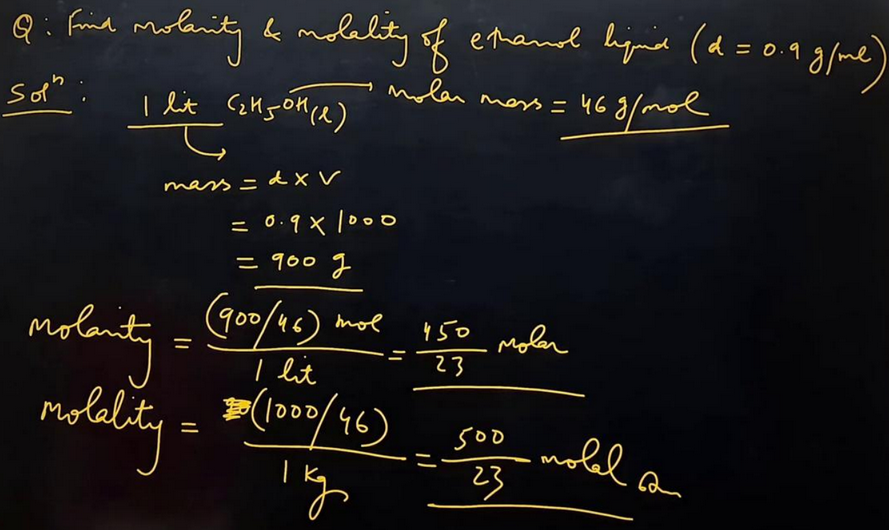 Q: Find molarity & molality of ethanol liquid (d = 0.9 g/ml)
Solⁿ: 1 lit C₂H₅OH(l) → molar mass = 46 g/mol
mass = d x V
= 0.9 x 1000
= 900 g
Molarity = (900/46) mol / 1 lit = 450/23 molar
Molality = (1000/46) / 1 kg = 500/23 molal